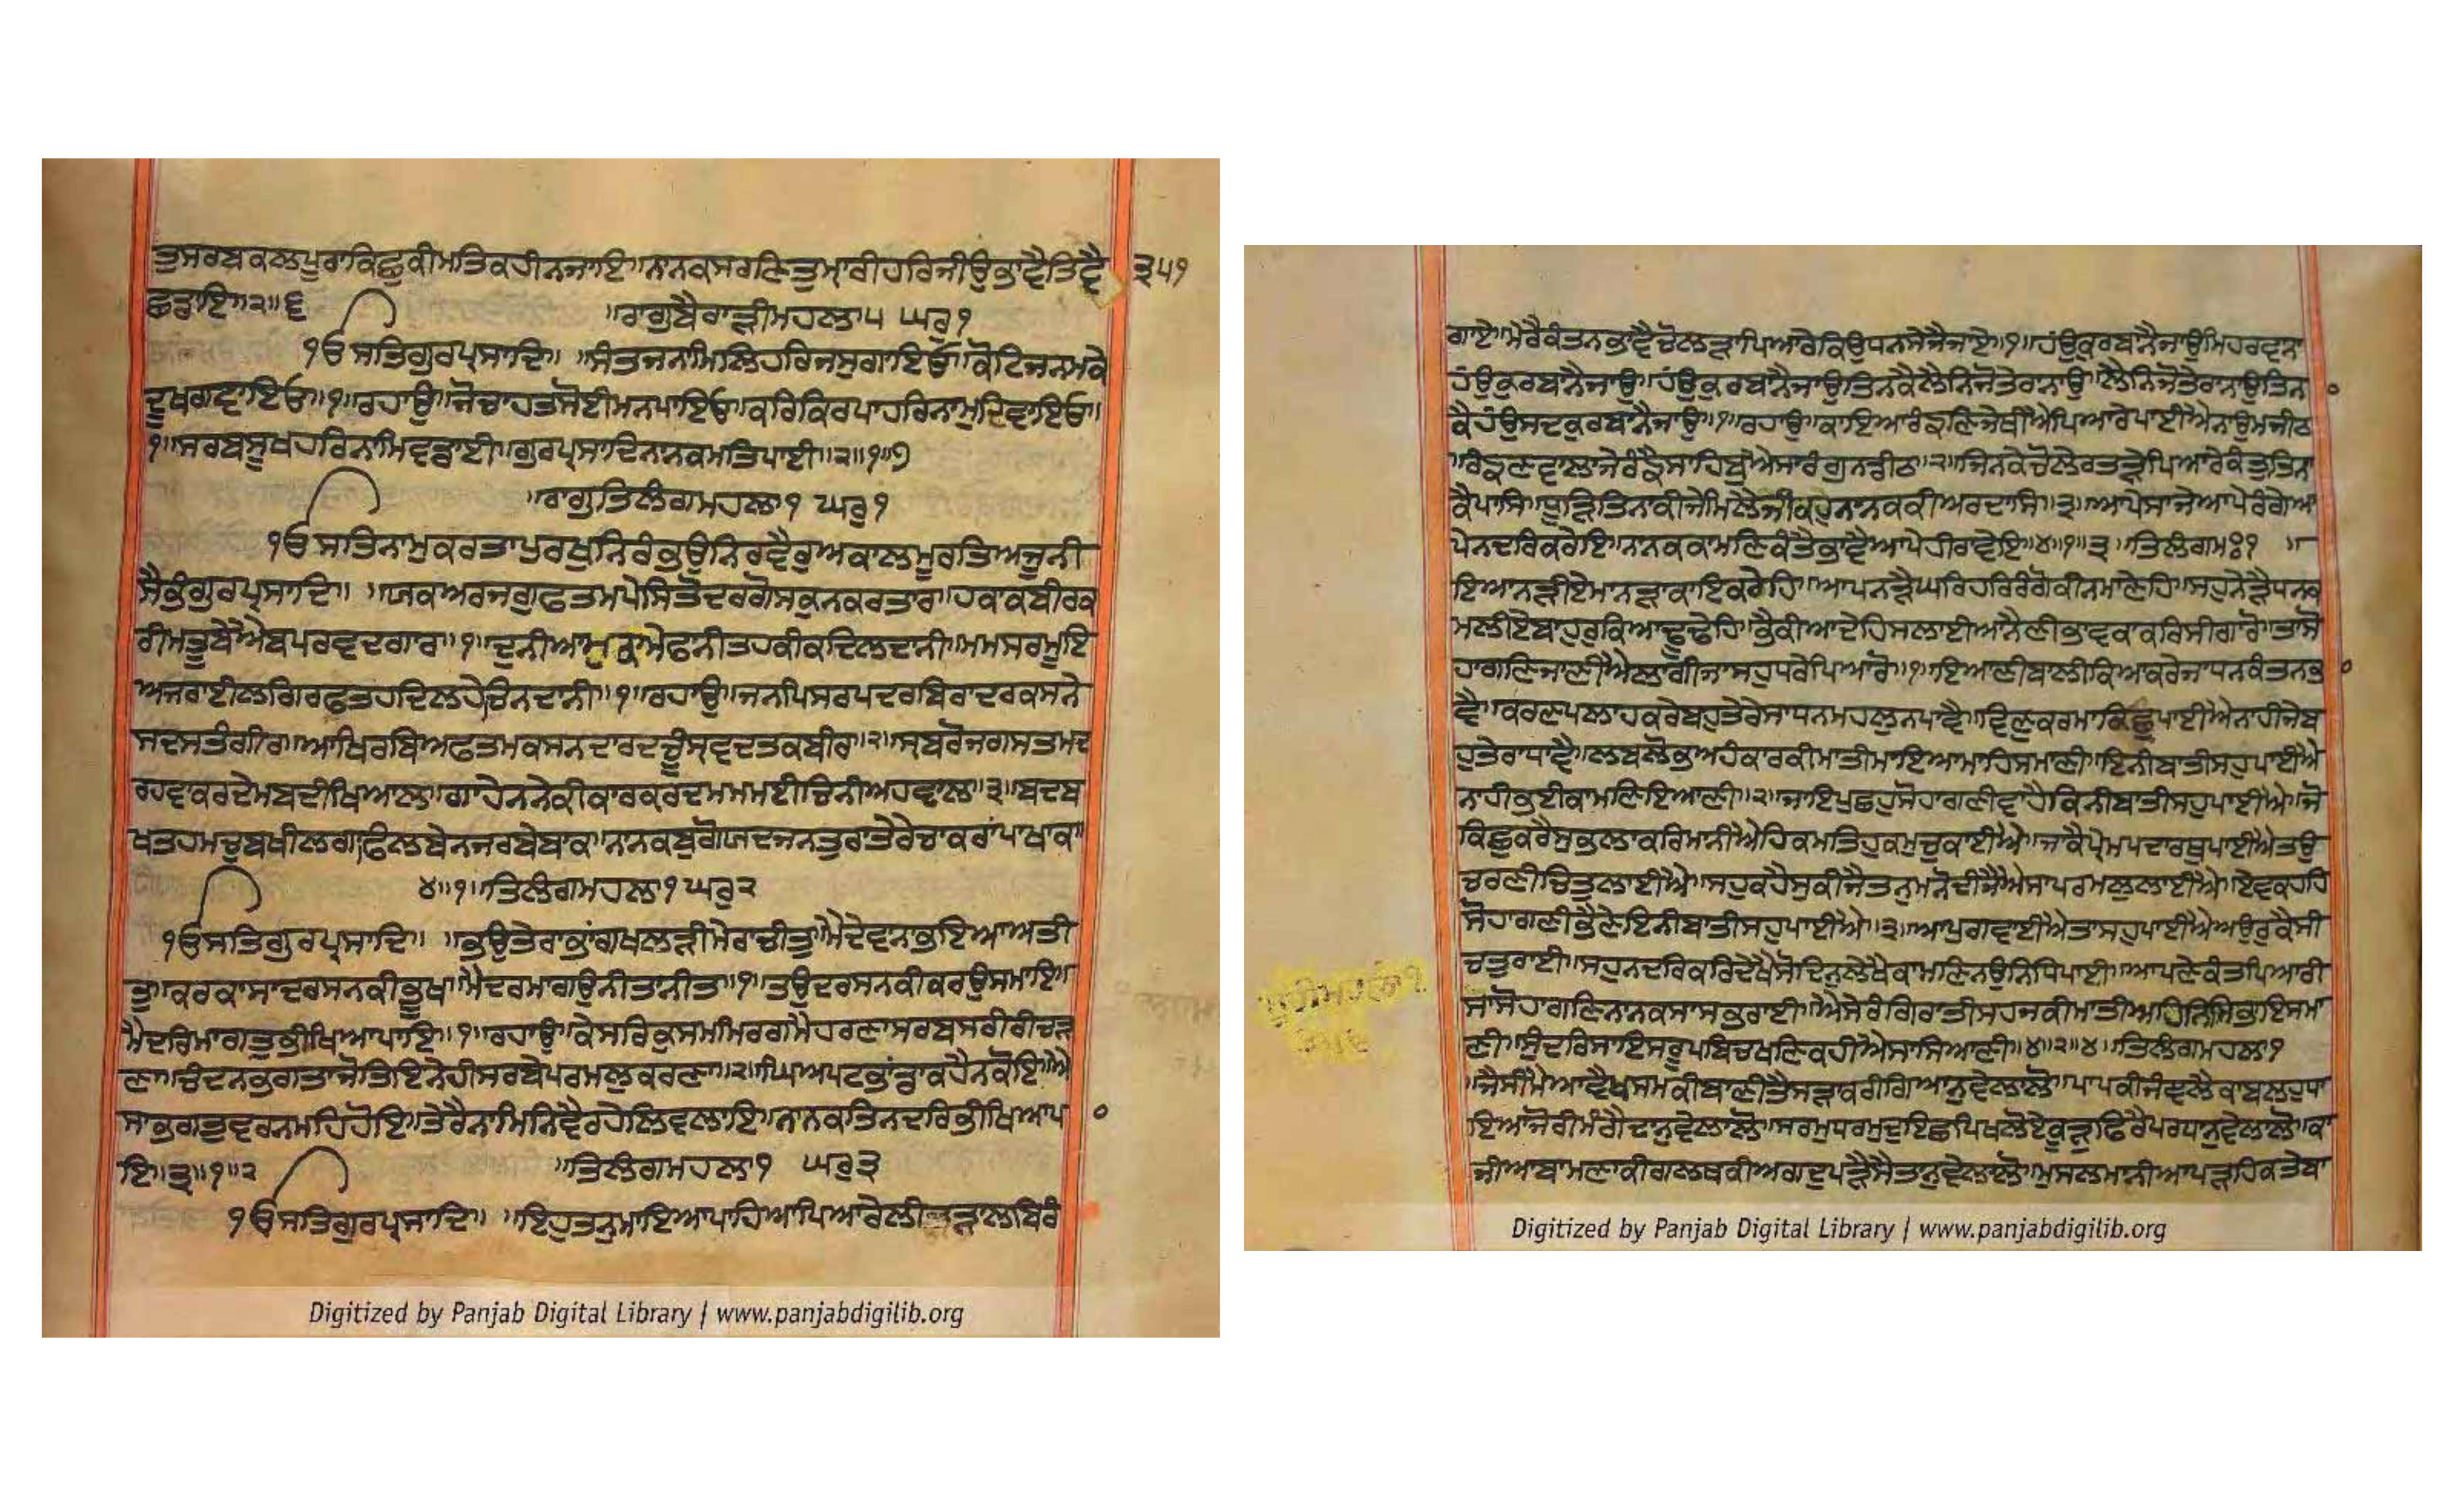 ਤੁਸਰਬਕਲਪੂਰਾਕਿਛੁਕੀਮਤਿਕਹੀਨਜਾਇ॥ਨਾਨਕਸਰਣਿਤੁਮ੍ਹਾਰੀਹਰਿਜੀਉਭਾਵੈਤਿਵੈ ੩੫੧
ਛਡਾਇ॥੨॥੬ ॥ਰਾਗੁਬੈਰਾੜੀਮਹਲਾ੫ ਘਰੁ੧
੧ਓੁਸਤਿਗੁਰਪ੍ਰਸਾਦਿ॥ ॥ਸੰਤਜਨਾਮਿਲਿਹਰਿਜਸੁਗਾਇਓ॥ਕੋਟਿਜਨਮਕੇ
ਦੂਖਗਵਾਇਓ॥੧॥ਰਹਾਉ॥ਜੋਚਾਹਤਸੋਈਮਨਪਾਇਓ॥ਕਰਿਕਿਰਪਾਹਰਿਨਾਮੁਦਿਵਾਇਓ॥
੧॥ਸਰਬਸੂਖਹਰਿਨਾਮਿਵਡਾਈ॥ਗੁਰਪ੍ਰਸਾਦਿਨਾਨਕਮਤਿਪਾਈ॥੨॥੧॥੭
॥ਰਾਗੁਤਿਲੰਗਮਹਲਾ੧ ਘਰੁ੧
੧ਓੁਸਤਿਨਾਮੁਕਰਤਾਪੁਰਖੁਨਿਰੰਭਉਨਿਰਵੈਰੁਅਕਾਲਮੂਰਤਿਅਜੂਨੀ
ਸੈਭੰਗੁਰਪ੍ਰਸਾਦਿ॥ ॥ਯਕਅਰਜਗੁਫਤਮਪੇਸਿਤੋਦਰਗੋਸਕੁਨਕਰਤਾਰ॥ਹਕਾਕਬੀਰਕ
ਰੀਮਤੂਬੇਐਬਪਰਵਦਗਾਰ॥੧॥ਦੁਨੀਆਮੁਕਾਮੇਫਨੀਤਹਕੀਕਦਿਲਦਾਨੀ॥ਮਮਸਰਮੂਇ
ਅਜਰਾਈਲਗਿਰਫਤਹਦਿਲਹੇਚਿਨਦਾਨੀ॥੧॥ਰਹਾਉ॥ਜਨਪਿਸਰਪਦਰਬਿਰਾਦਰਕਸਨੇ
ਸਦਸਤੰਗੀਰ॥ਆਖਿਰਬਿਅਫਤਮਕਸਨਦਾਰਦਚੂੰਸ੍ਵਦਤਕਬੀਰ॥੨॥ਸ੍ਬਰੋਜਗਸਤਮਦ
ਰਹਵਕਰਦੇਮਬਦੀਖਿਆਲ॥ਗਾਹੇਨਨੇਕੀਕਾਰਕਰਦਮਮਮਈਚਿਨੀਅਹਵਾਲ॥੩॥ਬਦਬ
ਖਤਹਮਚੁਬਖੀਲਗਾਫਿਲਬੇਨਜਰਬੇਬਾਕ॥ਨਾਨਕਬੁਗੋਯਦਜਨਤੁਰਾਤੇਰੇਚਾਕਰਾਂਪਾਖਾਕ॥
੪॥੧॥ਤਿਲੰਗਮਹਲਾ੧ ਘਰੁ੨
੧ਓੁਸਤਿਗੁਰਪ੍ਰਸਾਦਿ॥ ॥ਭਉਤੇਰਾਭਾਂਗਖਲੜੀਮੇਰਾਚੀਤੁ॥ਮੈਦੇਵਾਨਾਭਇਆਅਤੀ
ਤੁ॥ਕਰਕਾਸਾਦਰਸਨਕੀਭੂਖ॥ਮੈਦਰਮਾਗਉਨੀਤਾਨੀਤ॥੧॥ਤਉਦਰਸਨਕੀਕਰਉਸਮਾਇ॥
ਮੈਦਰਿਮਾਗਤੁਭੀਖਿਆਪਾਇ॥੧॥ਰਹਾਉ॥ਕੇਸਰਿਕੁਸਮਮਿਰਗਮੈਹਰਣਾਸਰਬਸਰੀਰੀਚੜ੍ਹ
ਣਾ॥ਚੰਦਨਭਗਤਾਜੋਤਿਇਨੇਹੀਸਰਬੇਪਰਮਲੁਕਰਣਾ॥੨॥ਘਿਅਪਟਭਾਂਡਾਕਹੈਨਕੋਇ॥ਐ
ਸਾਭਗਤੁਵਰਨਮਹਿਹੋਇ॥ਤੇਰੈਨਾਮਿਨਿਵੈਰਹੇਲਿਵਲਾਇ॥ਨਾਨਕਤਿਨਦਰਿਭੀਖਿਆਪਾ
ਇ॥੩॥੧॥੨ ॥ਤਿਲੰਗਮਹਲਾ੧ ਘਰੁ੩
੧ਓੁਸਤਿਗੁਰਪ੍ਰਸਾਦਿ॥ ॥ਇਹੁਤਨੁਮਾਇਆਪਾਹਿਆਪਿਆਰੇਲੀਤੜਾਲਬਿਰੰ
ਗਾਏ॥ਮੇਰੈਕੰਤਨਭਾਵੈਚੋਲੜਾਪਿਆਰੇਕਿਉਧਨਸੇਜੈਜਾਏ॥੧॥ਹੰਉਕੁਰਬਾਨੈਜਾਉਮਿਹਰਵਾਨਾ
ਹੰਉਕੁਰਬਾਨੈਜਾਉ॥ਹੰਉਕੁਰਬਾਨੈਜਾਉਤਿਨਾਕੈਲੈਨਿਜੋਤੇਰਾਨਾਉ॥ਲੈਨਿਜੋਤੇਰਾਨਾਉਤਿਨਾ
ਕੈਹੰਉਸਦਕੁਰਬਾਨੈਜਾਉ॥੧॥ਰਹਾਉ॥ਕਾਇਆਰੰਙਣਿਜੇਥੀਐਪਿਆਰੇਪਾਈਐਨਾਉਮਜੀਠ
॥ਰੰਙਣਵਾਲਾਜੇਰੰਙੈਸਾਹਿਬੁਐਸਾਰੰਗੁਨਡੀਠ॥੨॥ਜਿਨਕੇਚੋਲੇਰਤੜੇਪਿਆਰੇਕੰਤੁਤਿਨਾ
ਕੈਪਾਸਿ॥ਧੂੜਿਤਿਨਾਕੀਜੇਮਿਲੈਜੀਕਹੁਨਾਨਕਕੀਅਰਦਾਸਿ॥੩॥ਆਪੇਸਾਜੇਆਪੇਰੰਗੇਆ
ਪੇਨਦਰਿਕਰੇਇ॥ਨਾਨਕਕਾਮਣਿਕੰਤੈਭਾਵੈਆਪੇਹੀਰਾਵੇਇ॥੪॥੧॥੩॥ਤਿਲੰਗਮਃ੧ ॥
ਇਆਨੜੀਏਮਾਨੜਾਕਾਇਕਰੇਹਿ॥ਆਪਨੜੈਘਰਿਹਰਿਰੰਗੋਕੀਨਮਾਣੇਹਿ॥ਸਹੁਨੇੜੈਧਨਕ
ਮਲੀਏਬਾਹਰੁਕਿਆਢੂਢੇਹਿ॥ਭੈਕੀਆਦੇਹਿਸਲਾਈਆਨੈਣੀਭਾਵਕਾਕਰਿਸੀਗਾਰੋ॥ਤਾਸੋ
ਹਾਗਣਿਜਾਣੀਐਲਾਗੀਜਾਸਹੁਧਰੇਪਿਆਰੋ॥੧॥ਇਆਣੀਬਾਲੀਕਿਆਕਰੇਜਾਧਨਕੰਤਨਭਾ
ਵੈ॥ਕਰਣਪਲਾਹਕਰੇਬਹੁਤੇਰੇਸਾਧਨਮਹਲੁਨਪਾਵੈ॥ਵਿਣੁਕਰਮਾਕਿਛੁਪਾਈਐਨਾਹੀਜੇਬ
ਹੁਤੇਰਾਧਾਵੈ॥ਲਬਲੋਭਅਹੰਕਾਰਕੀਮਾਤੀਮਾਇਆਮਾਹਿਸਮਾਣੀ॥ਇਨੀਬਾਤੀਸਹੁਪਾਈਐ
ਨਾਹੀਭਈਕਾਮਣਿਇਆਣੀ॥੨॥ਜਾਇਪੁਛਹੁਸੋਹਾਗਣੀਵਾਹੈਕਿਨੀਬਾਤੀਸਹੁਪਾਈਐ॥ਜੋ
ਕਿਛੁਕਰੈਸੁਭਲਾਕਰਿਮਾਨੀਐਹਿਕਮਤਿਹੁਕਮੁਚੁਕਾਈਐ॥ਜਾਕੈਪ੍ਰੇਮਪਦਾਰਥੁਪਾਈਐਤਉ
ਚਰਣੀਚਿਤੁਲਾਈਐ॥ਸਹੁਕਹੈਸੁਕੀਜੈਤਨੁਮਨੋਦੀਜੈਐਸਾਪਰਮਲੁਲਾਈਐ॥ਏਵਕਹਹਿ
ਸੋਹਾਗਣੀਭੈਣੇਇਨੀਬਾਤੀਸਹੁਪਾਈਐ॥੩॥ਆਪੁਗਵਾਈਐਤਾਸਹੁਪਾਈਐਅਉਰੁਕੈਸੀ
ਚਤੁਰਾਈ॥ਸਹੁਨਦਰਿਕਰਿਦੇਖੈਸੋਦਿਨੁਲੇਖੈਕਾਮਣਿਨਉਨਿਧਿਪਾਈ॥ਆਪਣੇਕੰਤਪਿਆਰੀ
ਸਾਸੋਹਾਗਣਿਨਾਨਕਸਾਸਭਰਾਈ॥ਐਸੇਰੰਗਿਰਾਤੀਸਹਜਕੀਮਾਤੀਅਹਿਨਿਸਿਭਾਇਸਮਾ
ਣੀ॥ਸੁੰਦਰਿਸਾਇਸਰੂਪਬਿਚਖਣਿਕਹੀਐਸਾਸਿਆਣੀ॥੪॥੨॥੪॥ਤਿਲੰਗਮਹਲਾ੧
॥ਜੈਸੀਮੈਆਵੈਖਸਮਕੀਬਾਣੀਤੈਸੜਾਕਰੀਗਿਆਨੁਵੇਲਾਲੋ॥ਪਾਪਕੀਜੰਵਲੈਕਾਬਲਹੁਧਾ
ਇਆਜੋਰੀਮੰਗੈਦਾਨੁਵੇਲਾਲੋ॥ਸਰਮੁਧਰਮੁਦੁਇਛਪਿਖਲੋਏਕੂੜੁਫਿਰੈਪਰਧਾਨੁਵੇਲਾਲੋ॥ਕਾ
ਜੀਆਬਾਮਣਾਕੀਗਲਥਕੀਅਗਦੁਪੜੈਸੈਤਾਨੁਵੇਲਾਲੋ॥ਮੁਸਲਮਾਨੀਆਪੜਹਿਕਤੇਬਾ
Digitized by Panjab Digital Library | www.panjabdigilib.org
Digitized by Panjab Digital Library | www.panjabdigilib.org